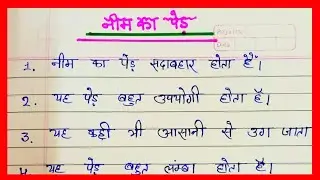 नीम का पेड़
1. नीम का पेड़ सदाबहार होता हैं।
2. यह पेड़ बहुत उपयोगी होता हैं।
3. यह कही भी आसानी से उग जाता
4. यह पेड़ बहुत लम्बा होता है।